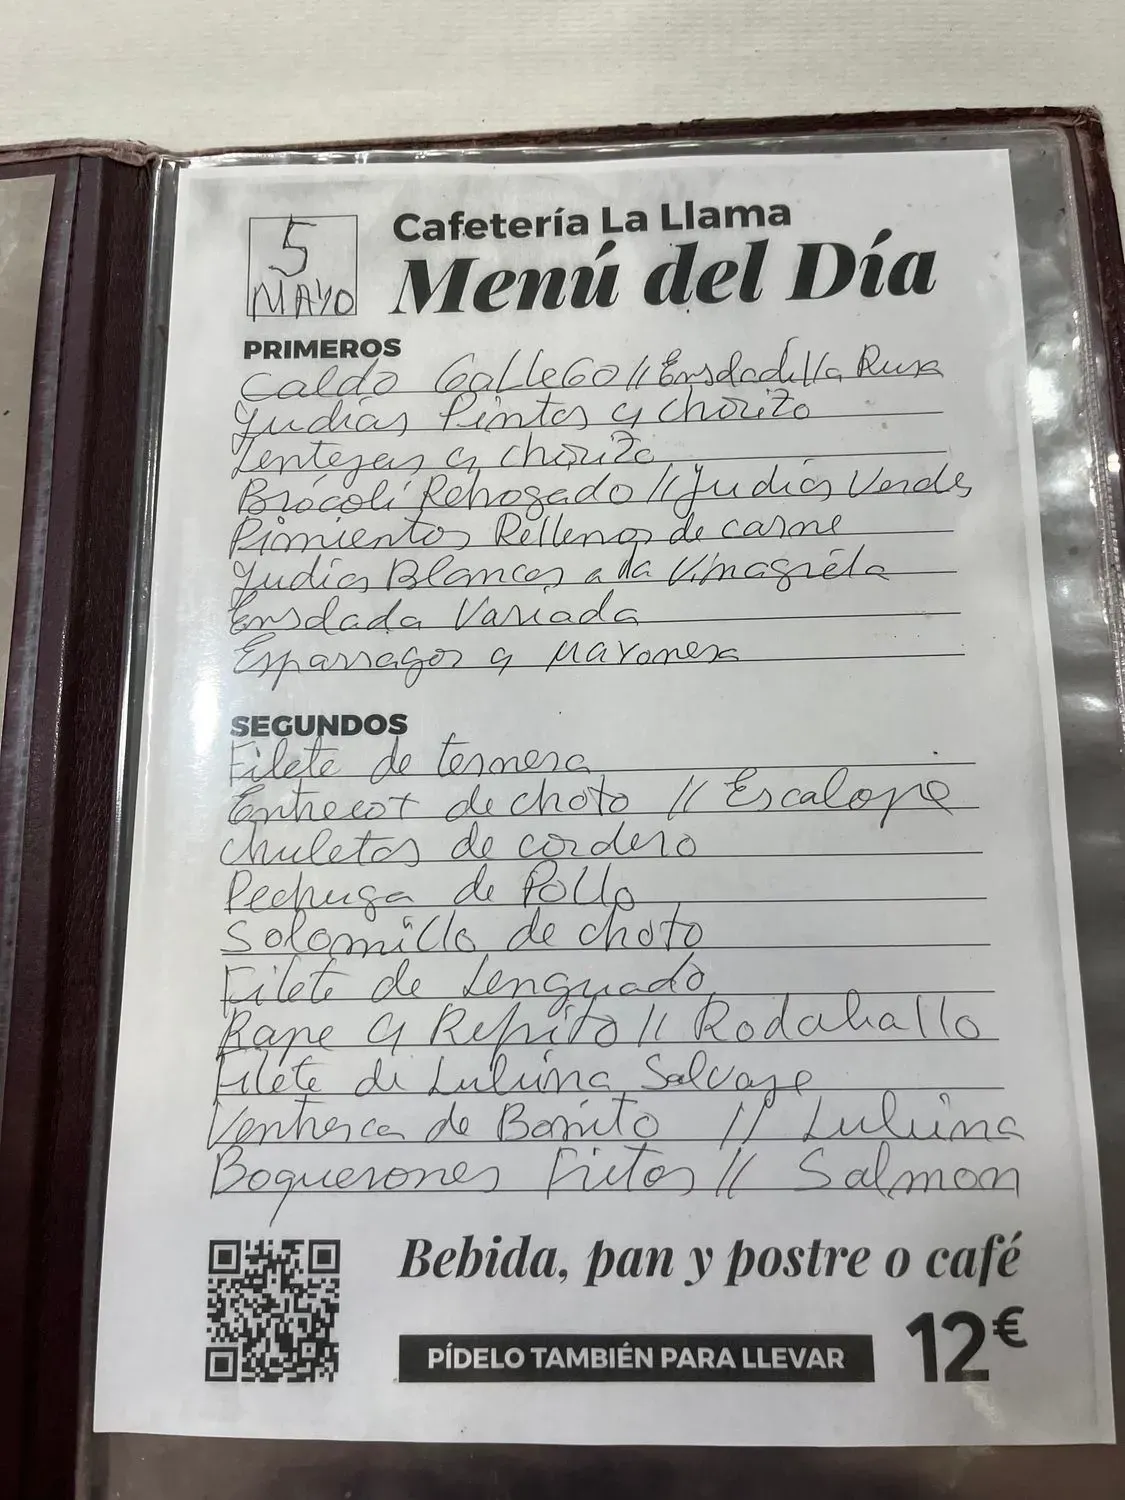 5
MAYO
Cafetería La Llama
Menú del Día
PRIMEROS
Caldo Gallego // Ensdadilla Rusa
Judías Pintas c/ chorizo
Lentejas c/ chorizo
Brócoli Rehogado // Judías Verdes
Pimientos Rellenos de carne
Judias Blancas a la Vinagreta
Ensdada Variada
Esparragos c/ Mayonesa
SEGUNDOS
Filete de ternera
Entrecot de choto // Escalope
Chuletas de cordero
Pechuga de Pollo
Solomillo de choto
Filete de Lenguado
Rape c/ Refrito // Rodaballo
Filete de Lubina Salvaje
Ventresca de Bonito // Lubina
Boquerones Fritos // Salmon
Bebida, pan y postre o café
PÍDELO TAMBIÉN PARA LLEVAR
12€